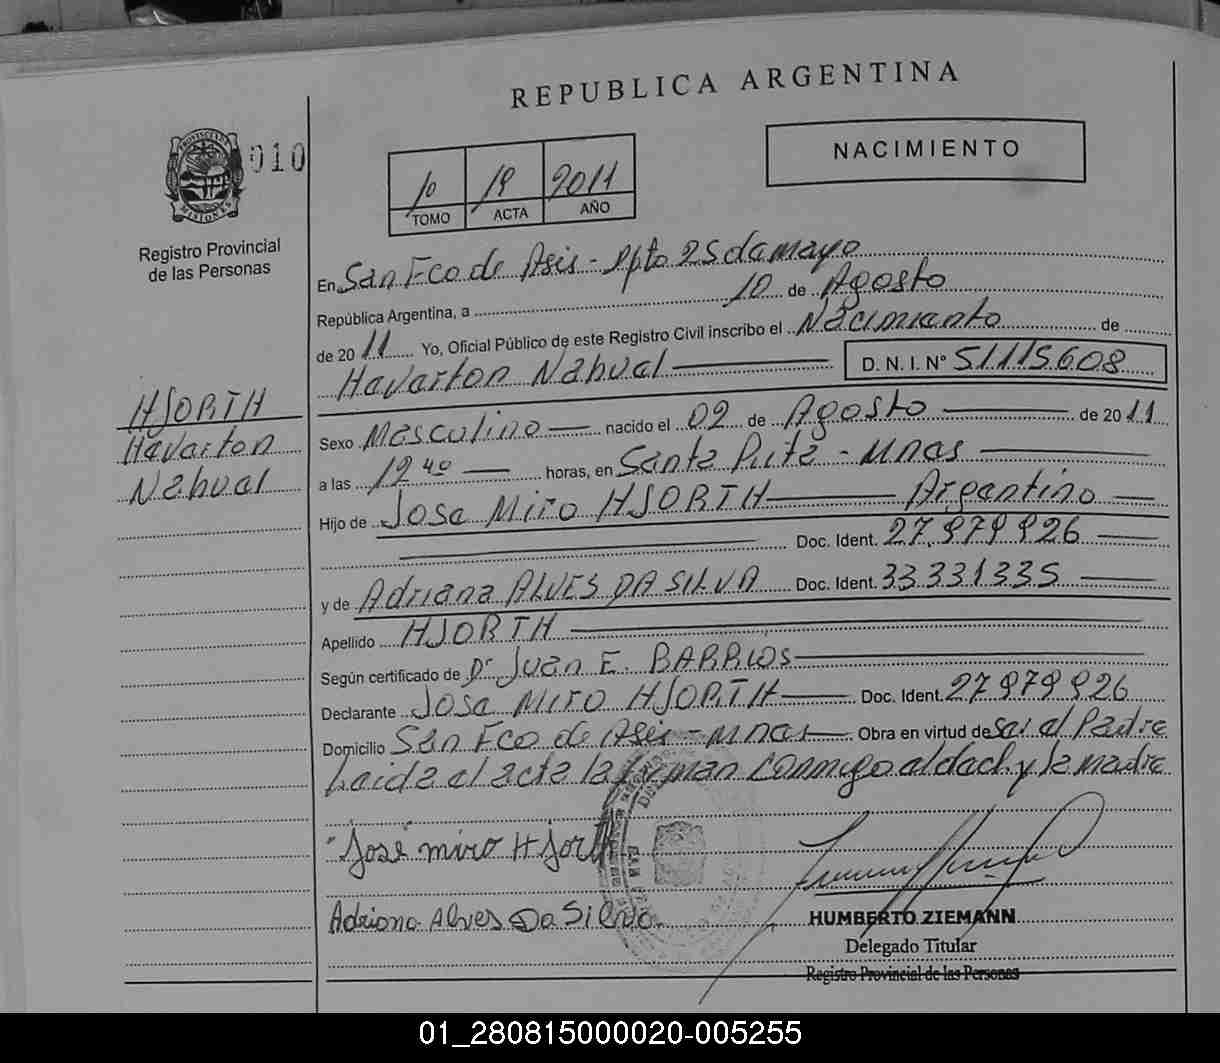 REPUBLICA ARGENTINA
010
MISIONES
Registro Provincial
de las Personas
10 19 2011
TOMO ACTA AÑO
NACIMIENTO
En San Fco de Asis - Dpto 25 de mayo
República Argentina, a 10 de Agosto
de 2011 Yo, Oficial Público de este Registro Civil inscribo el Nacimiento de
Havarton Nahuel D. N. I. Nº 51115608
HJORTH
Havarton
Nahuel
Sexo Masculino nacido el 02 de Agosto de 2011
a las 12 40 horas, en Santa Rita - Mnas
Hijo de Jose Miro HJORTH Argentino
Doc. Ident. 27.979926
y de Adriana ALVES DA SILVA Doc. Ident. 33331335
Apellido HJORTH
Según certificado de Dr Juan E. BARRIOS
Declarante Jose Miro HJORTH Doc. Ident. 27979926
Domicilio San Fco de Asis - Mnas Obra en virtud de ser el Padre
Leida el acta la firman conmigo el decl. y la madre
"José" miro Hjorth
Adriana Alves Da Silva
HUMBERTO ZIEMANN
Delegado Titular
Registro Provincial de las Personas
01_280815000020-005255